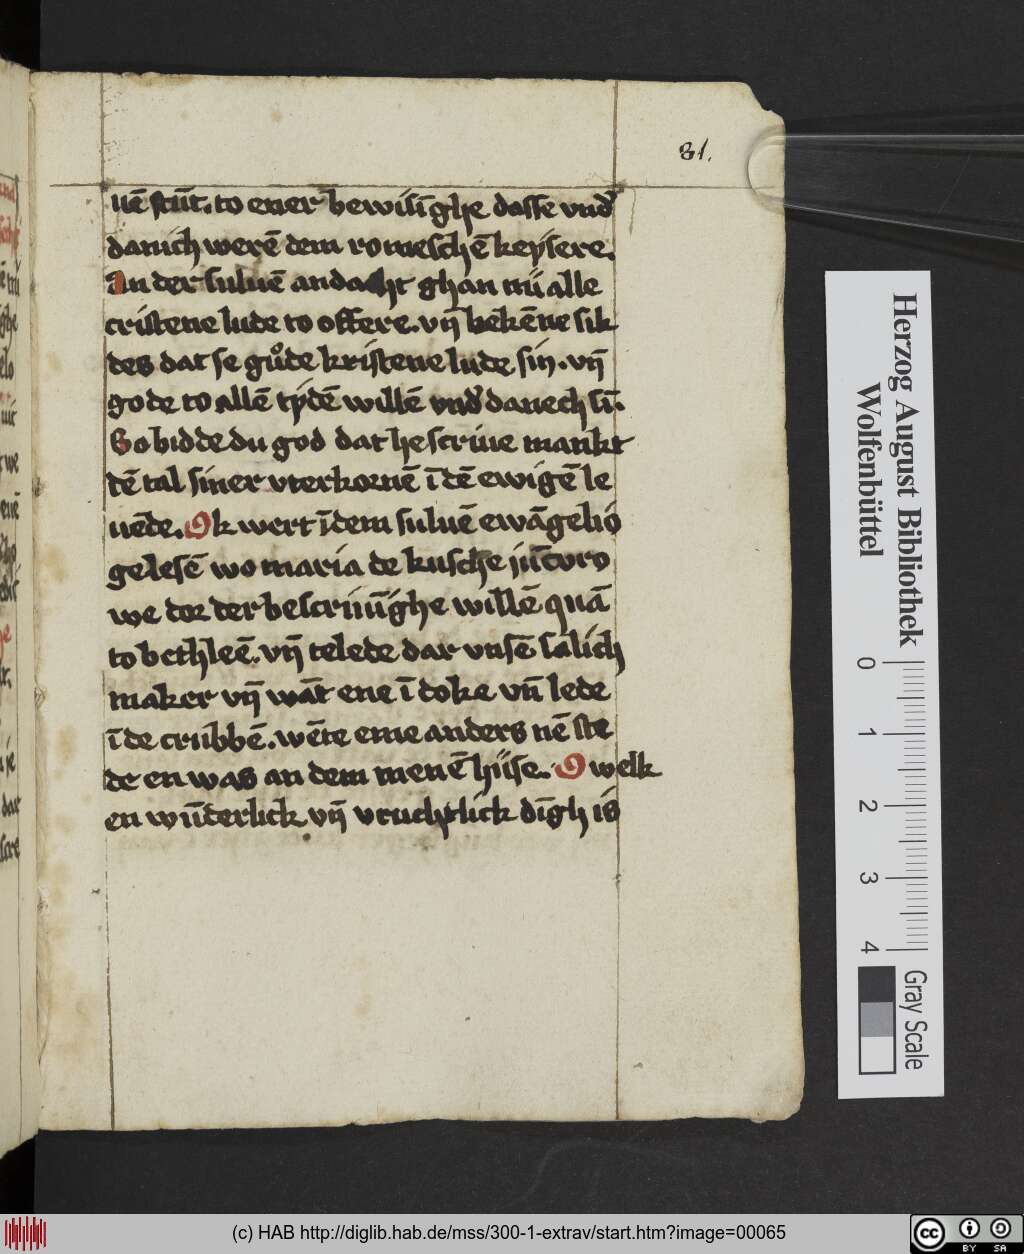 31.
uē stūt. to ener bewisīghe dasse vnd̓
danich werē dem romeschē keysere.
An der suluē andacht ghan nü alle
cristene lude to offere. vn̄ bekēne sik
des dat se gůde kristene lude sin. vn̄
gode to allē tydē willē vnd̓ danech sī.
So bidde du god dat he scriue mankt
dē tal siner vterkornē ī dē ewigē le
uēde. Ok wert īdem suluē ewāgelio
gelesē wo maria de kusche jūcvro
we dor der bescriuīghe willē quā
to bethleē. vn̄ telede dar vnsē salich
maker vn̄ wāt ene ī doke vn̄ lede
ī de crubbē. wēte eme anders nē ste
de en was an dem menē hüse. O welk
en wūderlick vn̄ vruchtlick dīgh is
Herzog August Bibliothek
Wolfenbüttel
0 1 2 3 4
Gray Scale
(c) HAB http://diglib.hab.de/mss/300-1-extrav/start.htm?image=00065
cc BY SA